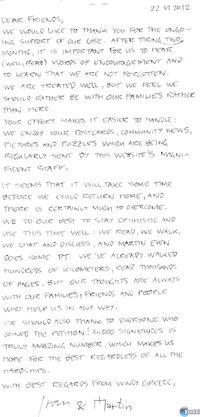 22 XI 2012
DEAR FRIENDS,
WE WOULD LIKE TO THANK YOU FOR THE ONGO-
ING SUPPORT OF OUR CASE. AFTER TIRING TWO
MONTHS, IT IS IMPORTANT FOR US TO HEAR
(WELL, READ) WORDS OF ENCOURAGEMENT AND
TO LEARN THAT WE ARE NOT FORGOTTEN.
WE ARE TREATED WELL, BUT WE FEEL WE
SHOULD RATHER BE WITH OUR FAMILIES RATHER
THAN HERE.
YOUR EFFORT MAKES IT EASIER TO HANDLE:
WE ENJOY YOUR POSTCARDS, COMMUNITY NEWS,
PICTURES AND PUZZLES WHICH ARE BEING
REGULARLY SENT BY THIS WEBSITE'S MAGNI-
FICENT STAFF.
IT SEEMS THAT IT WILL TAKE SOME TIME
BEFORE WE COULD RETURN HOME, AND
THERE IS CERTAINLY MUCH TO OVERCOME.
WE DO OUR BEST TO STAY OPTIMISTIC AND
USE THIS TIME WELL: WE READ, WE WALK,
WE CHAT AND DISCUSS, AND MARTIN EVEN
DOES SOME PT. WE'VE ALREADY WALKED
HUNDREDS OF KILOMETERS, READ THOUSANDS
OF PAGES, BUT OUR THOUGHTS ARE ALWAYS
WITH OUR FAMILIES, FRIENDS AND PEOPLE
WHO HELP US IN ANY WAY.
WE SHOULD ALSO THANK TO EVERYONE WHO
JOINED THE PETITION! SIGNATURES IS
TRULY AMAZING NUMBER, WHICH MAKES US
HOPE FOR THE BEST REGARDLESS OF ALL THE
HARDSHIPS.
WITH BEST REGARDS FROM WINDY GREECE,
Ivan & Martin